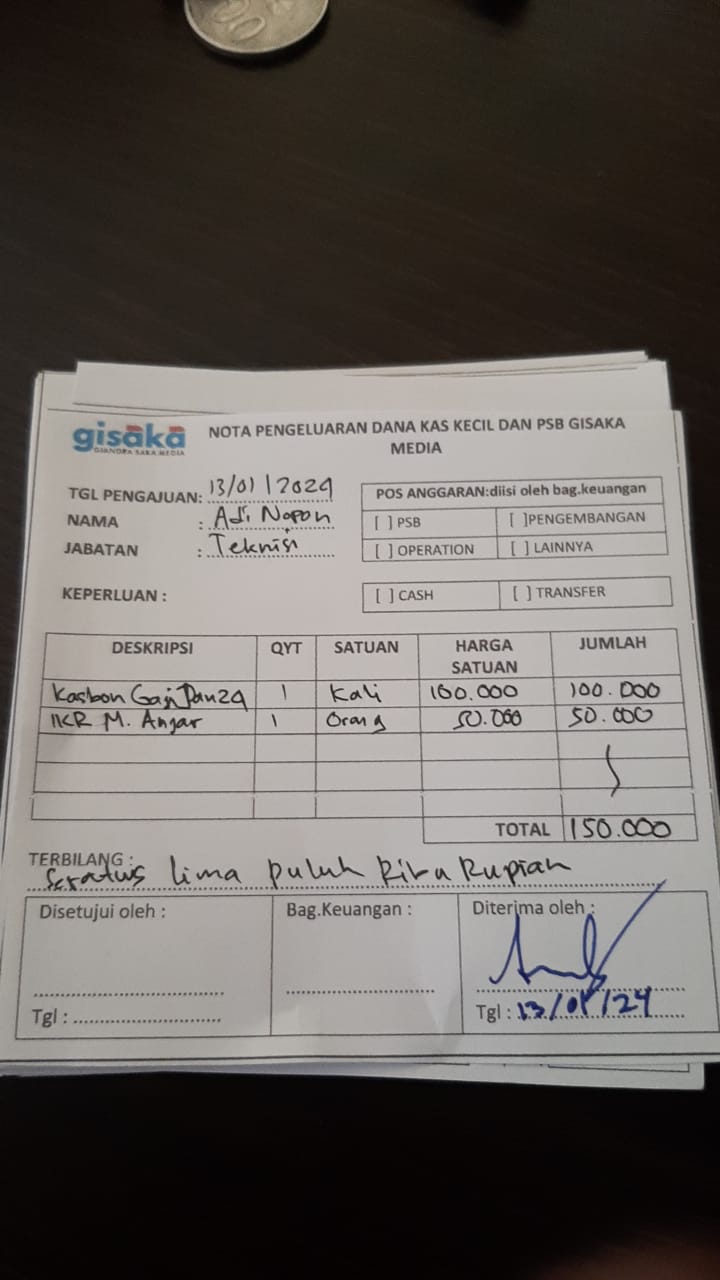 gisaka
GIANDRA SAKA MEDIA
NOTA PENGELUARAN DANA KAS KECIL DAN PSB GISAKA
MEDIA
TGL PENGAJUAN: 13/01/2024
NAMA : Adi Nopon
JABATAN : Teknisi
POS ANGGARAN:diisi oleh bag.keuangan
[ ] PSB [ ]PENGEMBANGAN
[ ] OPERATION [ ] LAINNYA
KEPERLUAN :
[ ] CASH [ ] TRANSFER
DESKRIPSI QYT SATUAN HARGA SATUAN JUMLAH
Kasbon Gaji Jan 24 1 Kali 100.000 100.000
IKR M. Anjar 1 Orang 50.000 50.000
TOTAL 150.000
TERBILANG :
Seratus lima puluh Ribu Rupiah
Disetujui oleh : Bag.Keuangan : Diterima oleh :
Tgl : Tgl : 13/01/24